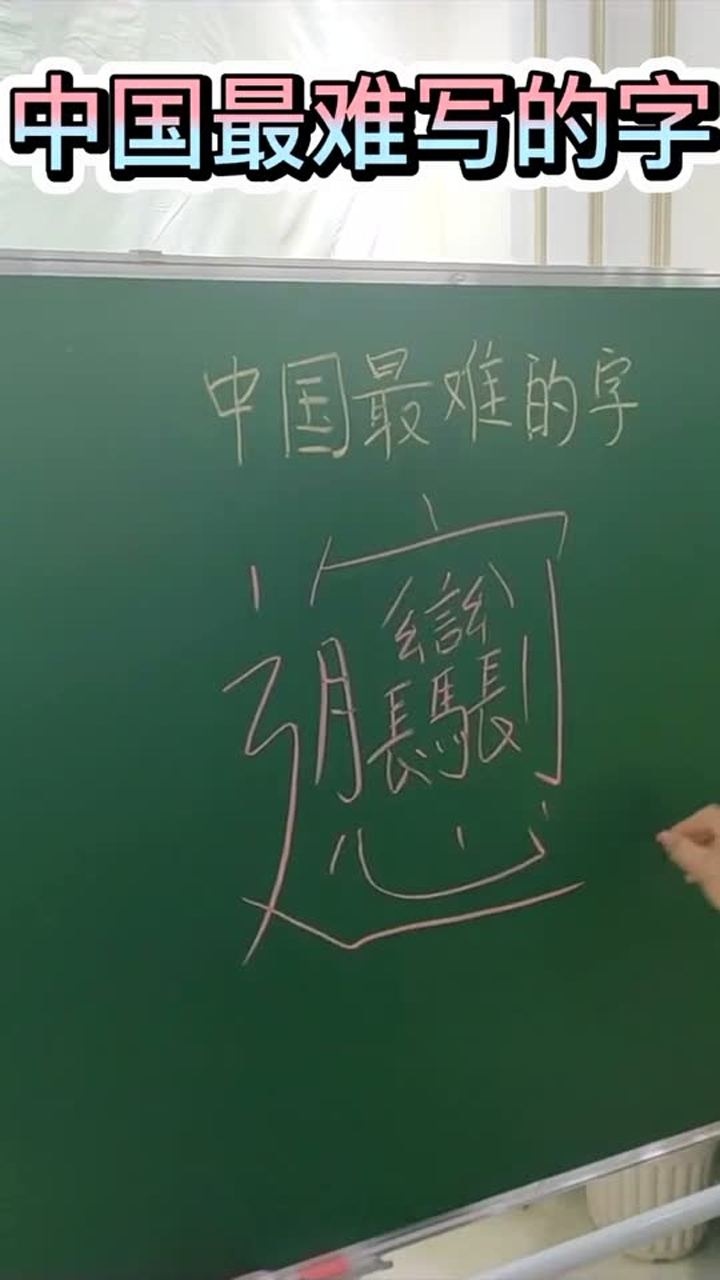 中国最难写的字
中国最难的字
𰻞